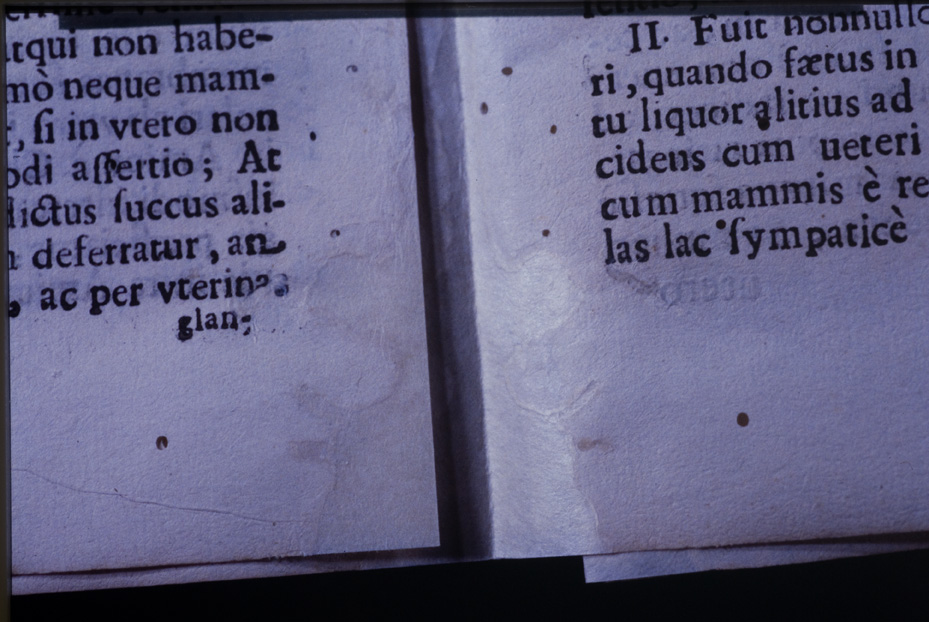 atqui non habe-
mò neque mam-
, ſi in vtero non
odi aſſertio; At
dictus ſuccus ali-
deferratur, an
, ac per vterinas
glan-
II. Fuit nonnullo
ri, quando fætus in
tu liquor alitius ad
cidens cum ueteri
cum mammis è re
las lac ſympaticè